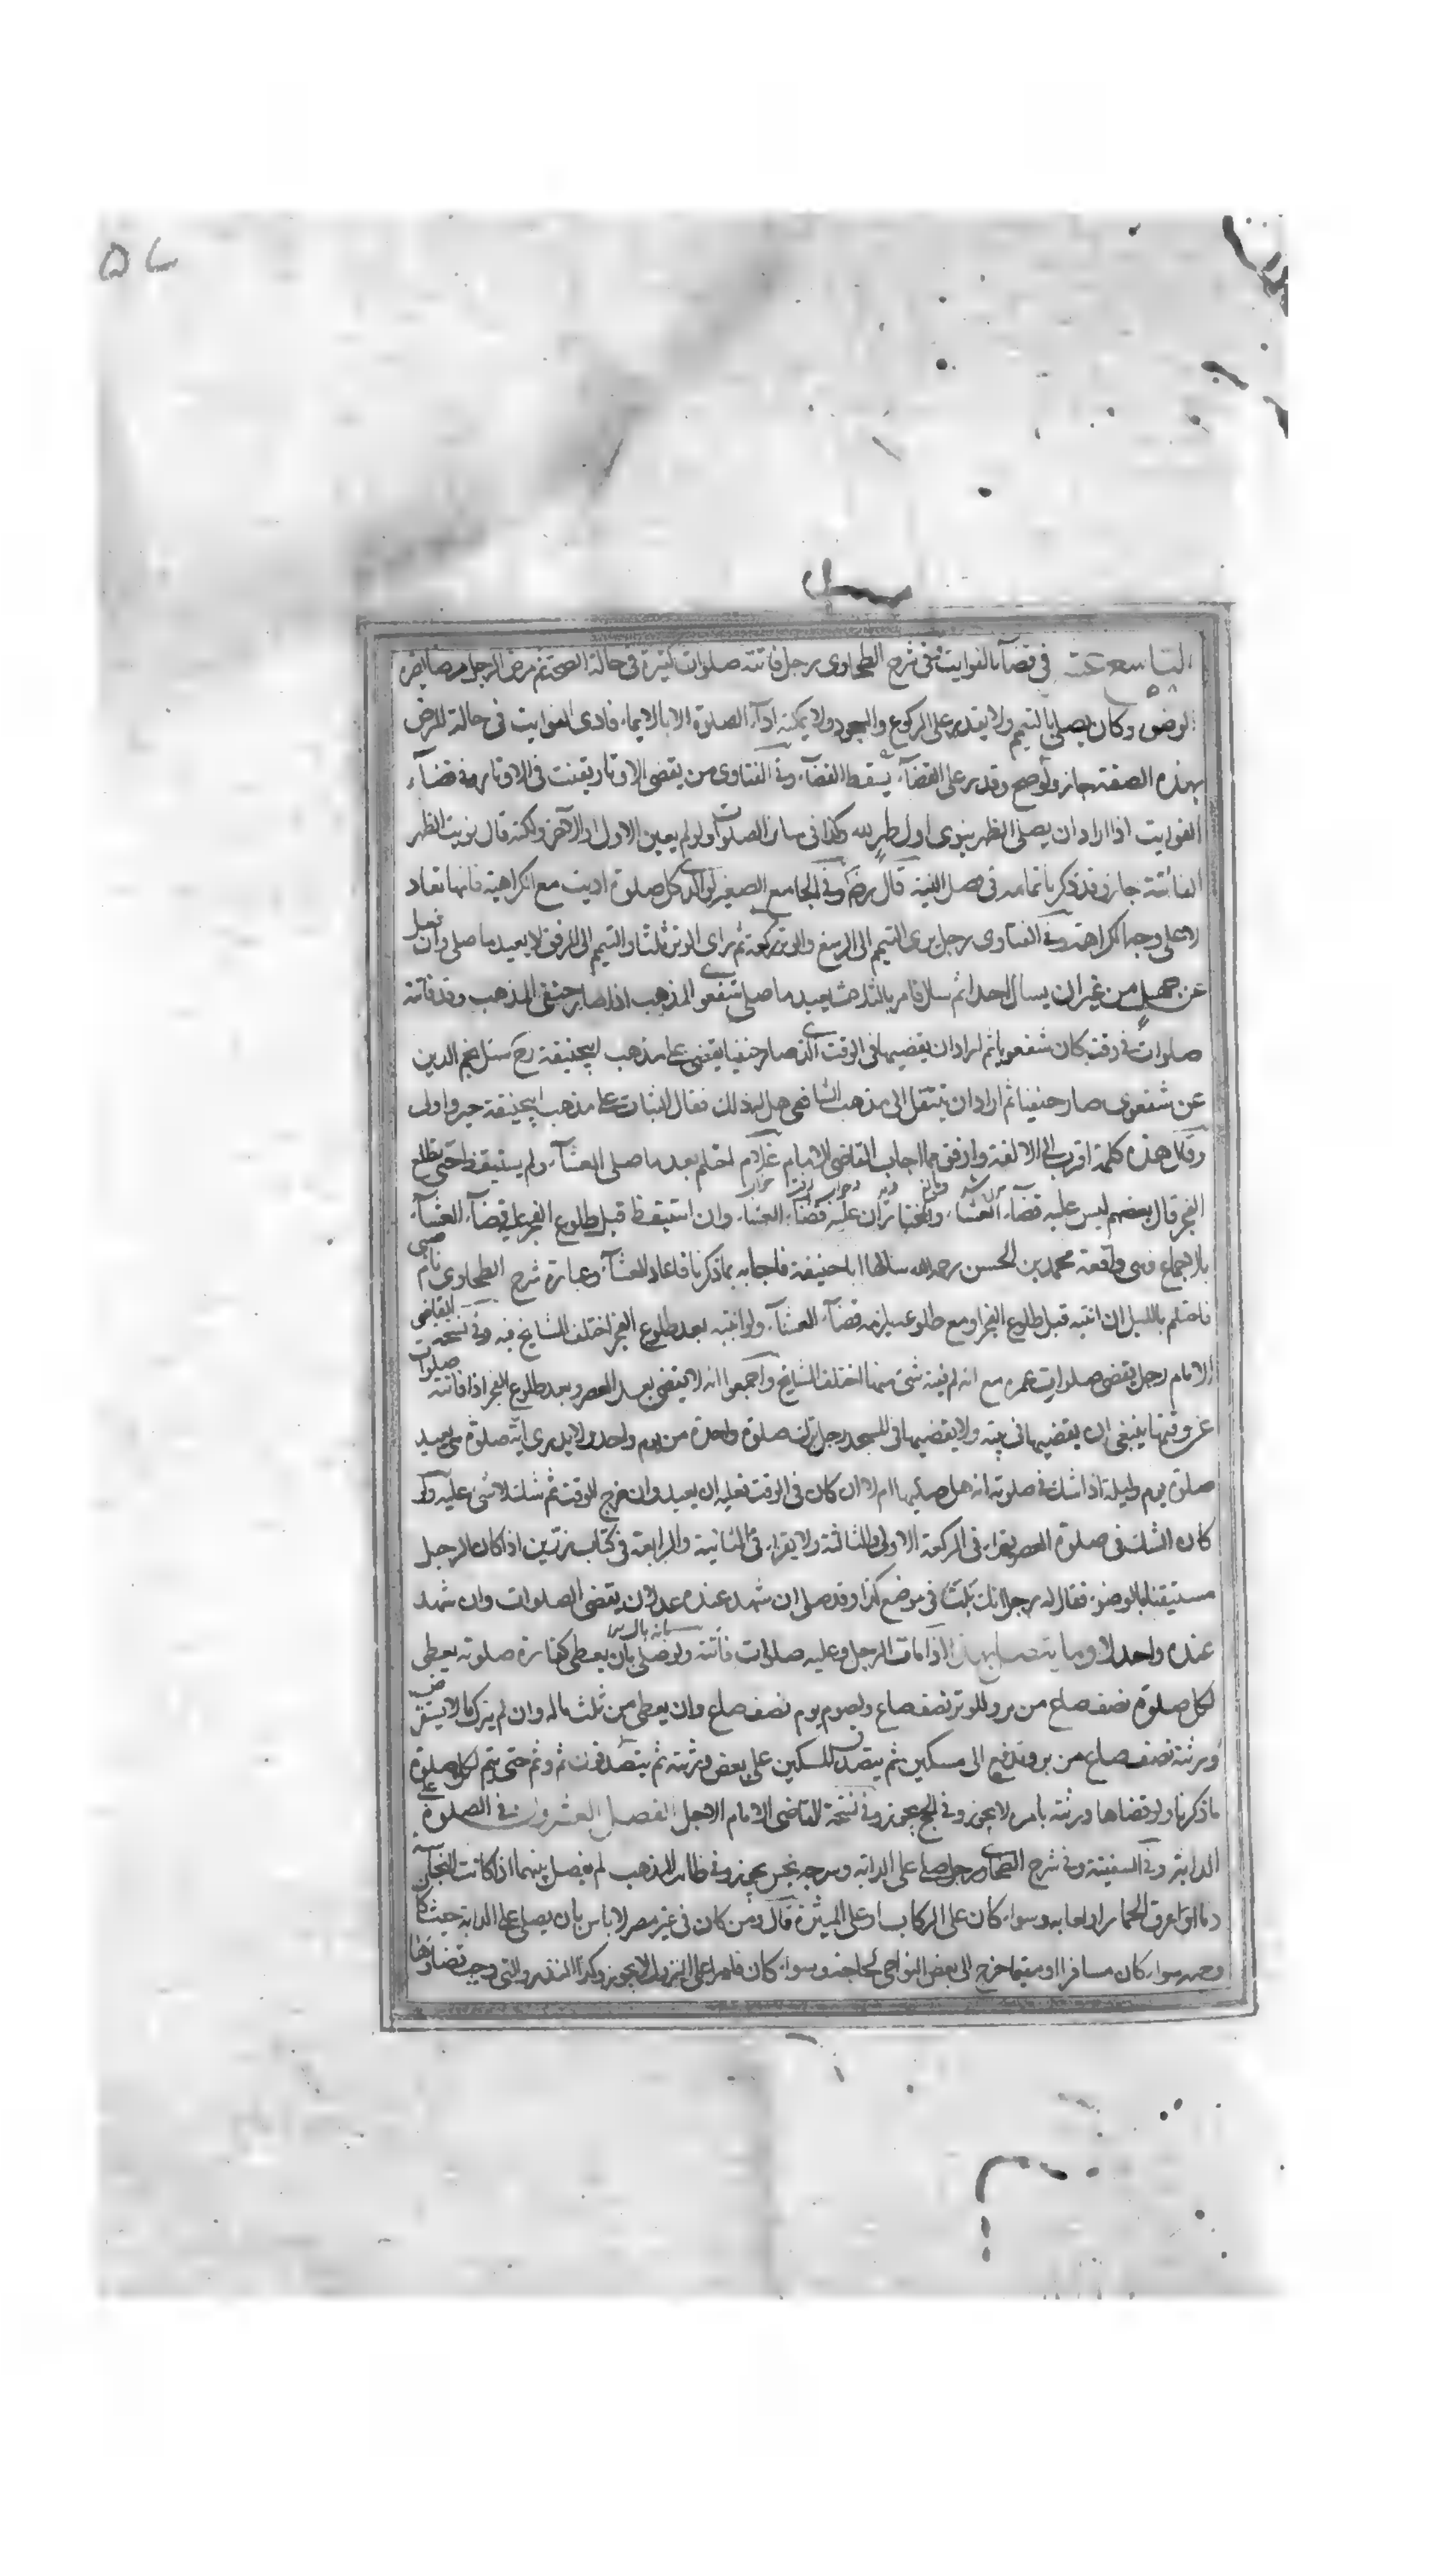 التاسع عشر في قضاء الفوايت وفي شرح الطحاوي رجل فاتته صلوات كثيرة في حالة الصحة ثم مرض الرجل مرضا يضره
الوضوء وكان يصلي بالتيمم ولا يقدر على الركوع والسجود ولا يمكنه اداء الصلوة الا بالايماء فادى الفوايت في حالة المرض
بهذه الصفة جاز ولو صح وقدر على القضاء يسقط القضاء وفي الفتاوى من يقضي الاوتار يقنت في الاوتار وفي قضاء
الفوايت اذا اراد ان يصلي الظهر ينوي اول ظهر لله وكذا في سائر الصلوات ولو لم يعين الاول او الآخر ولكنه قال نويت الظهر
الفائتة جاز وقد ذكرنا تمامه في فصل النية قال رضي وفي الجامع الصغير كل صلوة اديت مع الكراهية فانها تعاد
لا على وجه الكراهة وفي الفتاوى رجل يرى التيمم الى الرسغ والوتر ركعة ثم راى الوتر ثلثا والتيمم الى المرفق لا يعيد ما صلى وان فعل
عن جهل من غير ان يسال احدا ثم سال فامر بالثلاث يعيد ما صلى شفعوي المذهب اذا صار حنفي المذهب وقد فاتته
صلوات في وقت كان شفعويا ثم اراد ان يقضيها في الوقت الذي صار حنفيا يقضي على مذهب ابيحنيفة رح سئل نجم الدين
عن شفعوي صار حنفيا ثم اراد ان ينتقل الى مذهب الشافعي هل له ذلك فقال الثبات على مذهب ابيحنيفة خير واولى
وقال هذه كلمة اقرب الى الالفة وارفق مما اجاب القاضي الامام غلام احتلم بعد ما صلى العشاء ولم يستيقظ حتى يطلع
الفجر قال بعضهم ليس عليه قضاء العشاء والمختار ان عليه قضاء العشاء وان استيقظ قبل طلوع الفجر عليه قضاء العشاء
بالاجماع وهي واقعة محمد بن الحسن رحمه الله سالها ابا حنيفة فاجابه بما ذكرنا فاعاد العشاء وعبارة شرح الطحاوي صبي نام
فاحتلم بالليل ان انتبه قبل طلوع الفجر او مع طلوعه يلزمه قضاء العشاء ولو انتبه بعد طلوع الفجر اختلف المشايخ فيه وفي نسخة القاضي
الامام رجل يقضي صلوات عمره مع انه لم يفته شئ منها اختلف المشايخ واجمعوا انه لا يقضي بعد العصر وبعد طلوع الفجر اذا فاتته صلوات
عن وقتها ينبغي ان يقضيها في بيته ولا يقضيها في المسجد رجل ترك صلوة واحدة من يوم واحد ولا يدري اية صلوة هي يعيد
صلوة يوم وليلة اذا شك في صلوته انه هل صليها ام لا ان كان في الوقت فعليه ان يعيد وان خرج الوقت ثم شك لا شئ عليه ولو
كان الشك في صلوة العصر يقراء في الركعة الاولى والثالثة ولا يقراء في الثانية والرابعة في كتاب رزين اذا كان الرجل
مستيقنا بالوضوء فقال له رجل انك بلت في موضع كذا وقد صلى ان شهد عنده عدلان يقضي الصلوات وان شهد
عنده واحد لا وما يتصل بهذا اذا مات الرجل وعليه صلوات فائتة واوصى بان يعطى كفارة صلوته يعطى
لكل صلوة نصف صاع من بر وللوتر نصف صاع ولصوم يوم نصف صاع وان يعطى من ثلث ماله وان لم يترك مالا يستقرض
ورثته نصف صاع من بر وتدفع الى مسكين ثم يتصدق المسكين على بعض ورثته ثم يتصدقون ثم وثم حتى يتم لكل صلوة
ما ذكرنا ولو قضاها ورثته بامره لا يجوز وفي الحج يجوز وفي نسخة القاضي الامام الاجل الفصل العشرون في الصلوة على
الدابة وفي السفينة وفي شرح الطحاوي رجل صلى على الدابة وسرجه نجس يجوز وفي ظاهر المذهب لم يفصل بينهما اذا كانت النجاسة
دما او عرق الحمار او لعابه وسواء كان على الركاب او على الميثرة قال ومن كان في غير مصر لا باس بان يصلي على الدابة حيث كان
وجهه سواء كان مسافرا او مقيما خرج الى بعض النواحي لحاجته وسواء كان قادرا على النزول لا يجوز وكذا المنذور والتي وجب قضاؤها